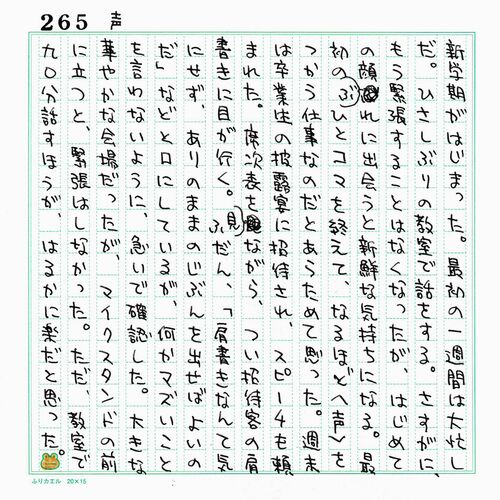 265 声
新学期がはじまった。最初の一週間は大忙し
だ。ひさしぶりの教室で話をする。さすがに、
もう緊張することはなくなったが、はじめて
の顔ぶれに出会うと新鮮な気持ちになる。最
初のひとコマを終えて、なるほど〈声〉を
つかう仕事なのだとあらためて思った。週末
は卒業生の披露宴に招待され、スピーチも頼
まれた。席次表を見ながら、つい招待客の肩
書きに目が行く。ふだん、「肩書きなんて気
にせず、ありのままのじぶんを出せばよいの
だ」などと口にしているが、何かマズいこと
を言わないように、急いで確認した。大きな
華やかな会場だったが、マイクスタンドの前
に立つと、緊張はしなかった。ただ、教室で
九〇分話すほうが、はるかに楽だと思った。
ふりカエル 20×15